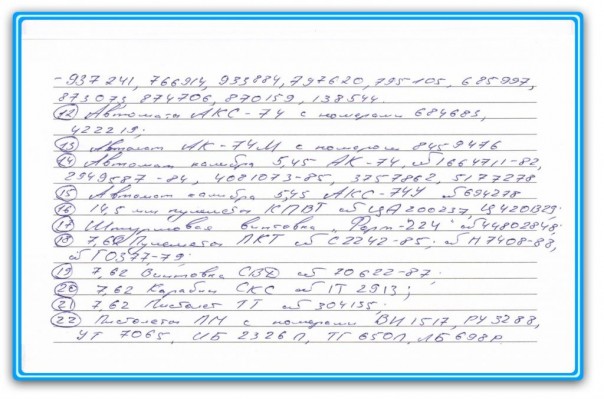 -937241, 766914, 933884, 797620, 795105, 685997,
873073, 874706, 870159, 138544.
12 Автоматы АКС-74 с номерами 684683,
422219;
13 Автомат АК-74М с номером 8459476
14 Автомат калибра 5,45 АК-74, № 1664711-82,
2949587-84, 4021073-85, 3757862, 5177278
15 Автомат калибра 5,45 АКС-74У № 694278
16 14,5 мм пулеметы КПВТ № ЦА200237, Ц420829;
17 Штурмовая винтовка „Форт-224" № 44802848;
18 7,62 Пулеметы ПКТ № С2242-85; № М7408-88,
№ Г0377-79;
19 7,62 Винтовка СВД № 70622-87;
20 7,62 Карабин СКС № IT 2913;
21 7,62 Пистолет ТТ № 304135.
22 Пистолеты ПМ с номерами ВИ1517, РУ3288,
УТ 7065, ИБ 2326П, ТГ 650П, ЛБ 698Р